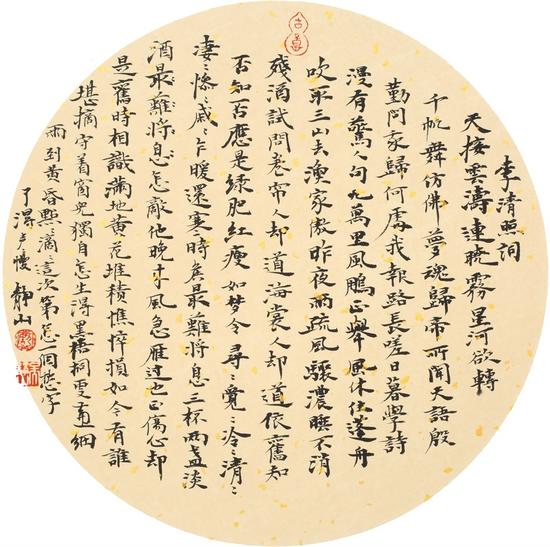 李清照詞
天接雲濤連曉霧星河欲轉
千帆舞仿佛夢魂歸帝所聞天語殷
勤問家歸何處我報路長嗟日暮學詩
漫有驚人句九萬里風鵬正舉風休住蓬舟
吹取三山去漁家傲昨夜雨疏風驟濃睡不消
殘酒試問卷帘人却道海棠人却道依舊知
否知否應是綠肥紅瘦如夢令尋〻覓〻冷〻清〻
淒〻慘〻戚〻乍暖還寒時矦最難將息三杯兩盞淡
酒最難將息怎敵他晚來風急雁過也正傷心却
是舊時相識滿地黃花堆積憔悴損如今有誰
堪摘守着窗兒獨自怎生得黑梧桐更兼細
雨到黃昏點〻滴〻這次第怎個愁字
了得聲慢靜山
吉喜